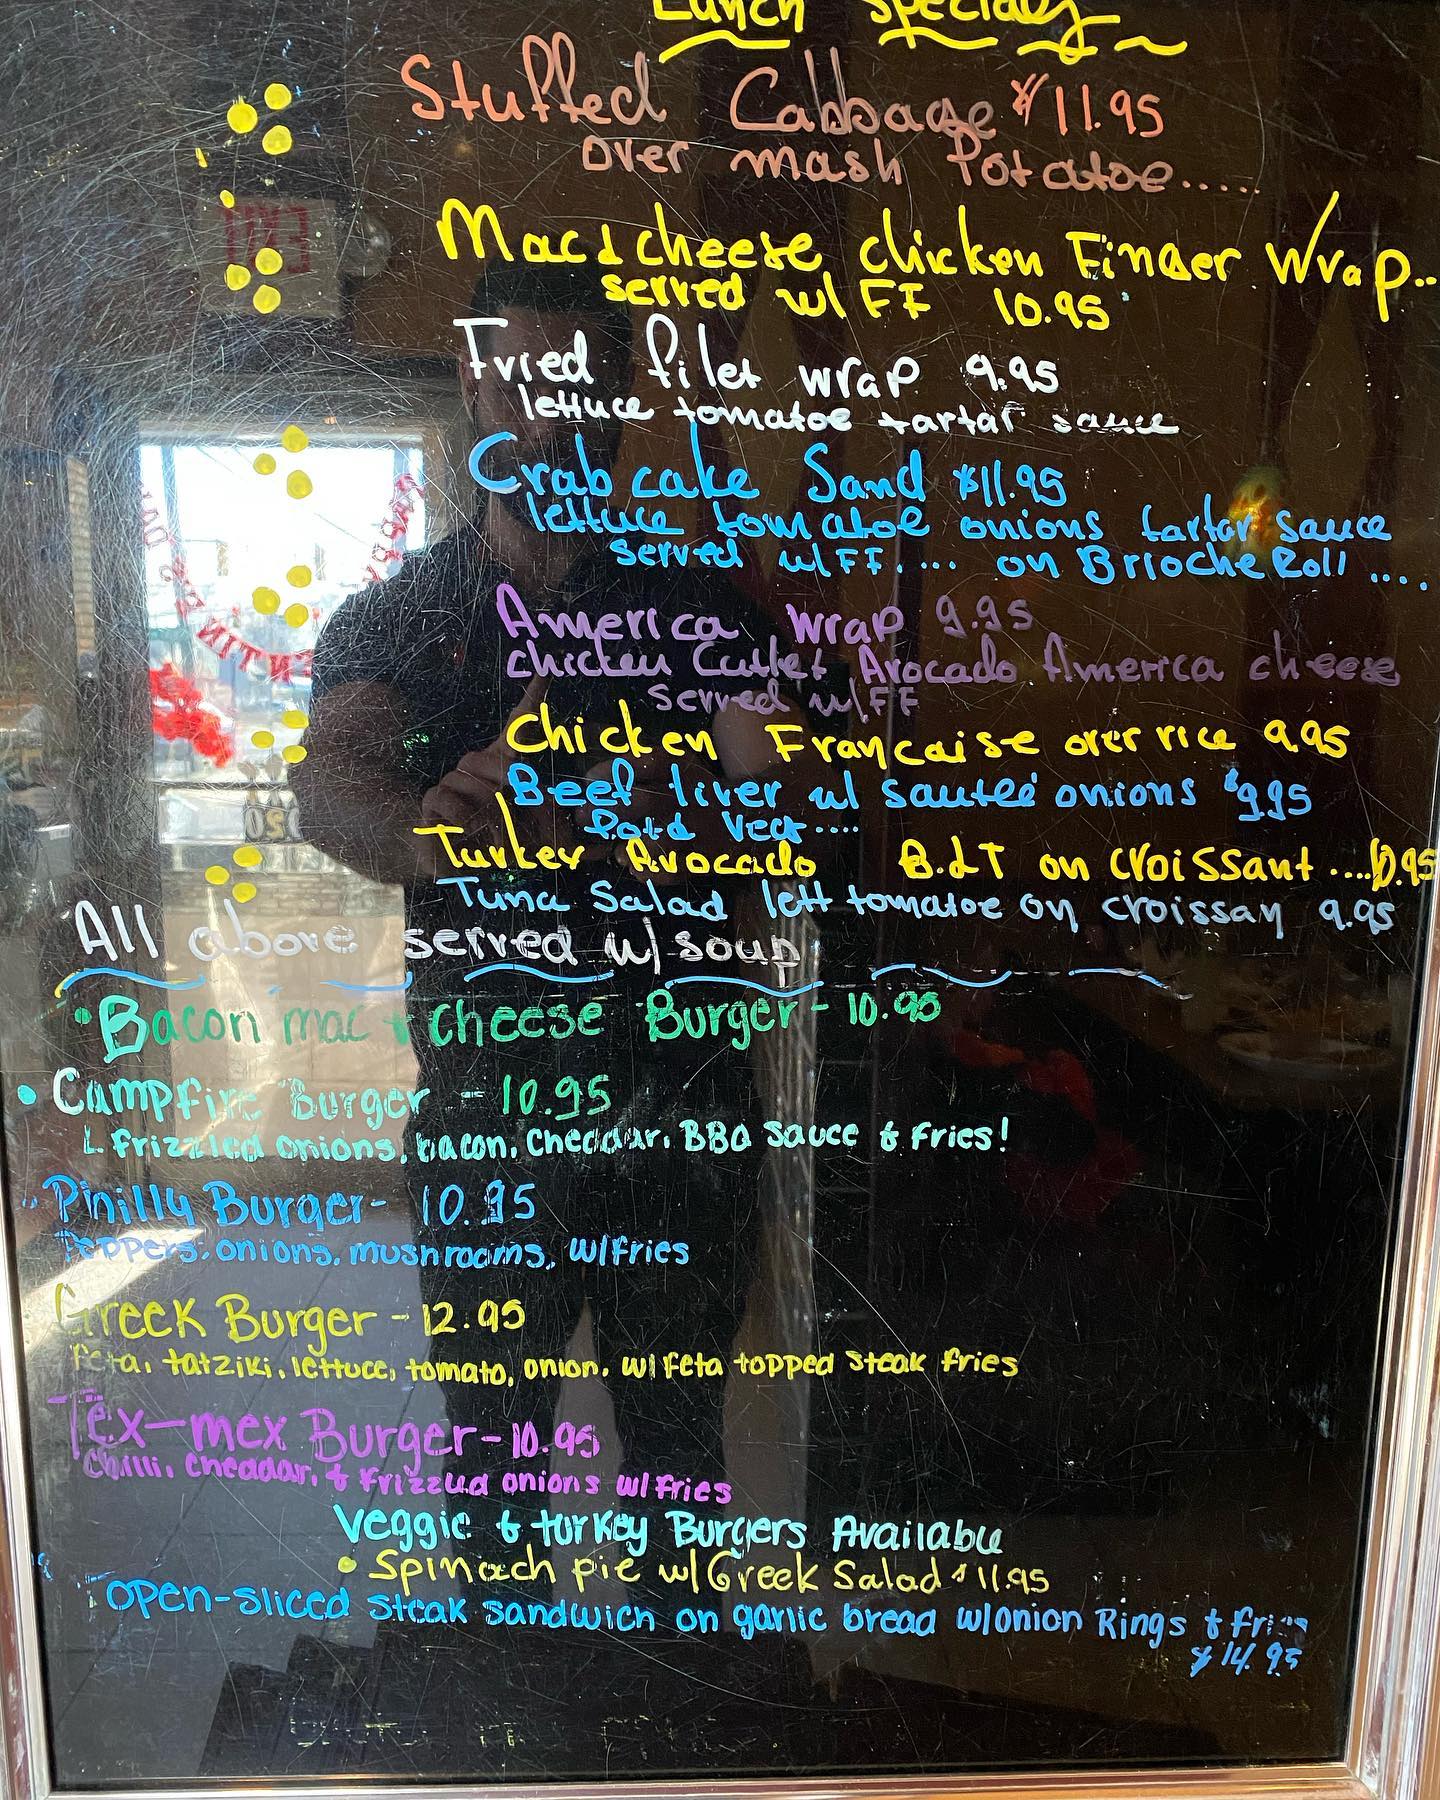 Lunch Specials
Stuffed Cabbage $11.95
over mash Potatoe......
Mac & cheese chicken Finger Wrap..
served w/ FF 10.95
Fried filet wrap 9.95
lettuce tomatoe tartar sauce
Crab cake Sand $11.95
lettuce tomatoe onions tartar sauce
served w/FF..... on Brioche Roll ....
America wrap 9.95
chicken Cutlet Avocado America cheese
served w/FF
Chicken Française over rice 9.95
Beef liver w/ sauteé onions $9.95
Turkey Avocado B.L.T on croissant ....10.95
Tuna Salad lett tomatoe on croissan 9.95
All above served w/ soup
• Bacon mac & cheese Burger - 10.95
• Campfire Burger - 10.95
L frizzled onions, bacon, cheddar, BBQ sauce & fries!
Philly Burger - 10.95
Peppers, onions, mushrooms, w/fries
Greek Burger - 12.95
feta, tatziki, lettuce, tomato, onion, w/ feta topped steak fries
Tex-mex Burger - 10.95
Chilli, cheddar, & frizzled onions w/ fries
Veggie & turkey Burgers Available
• Spinach pie w/ Greek Salad $11.95
open-sliced steak sandwich on garlic bread w/onion Rings & fries
$14.95
EXIT